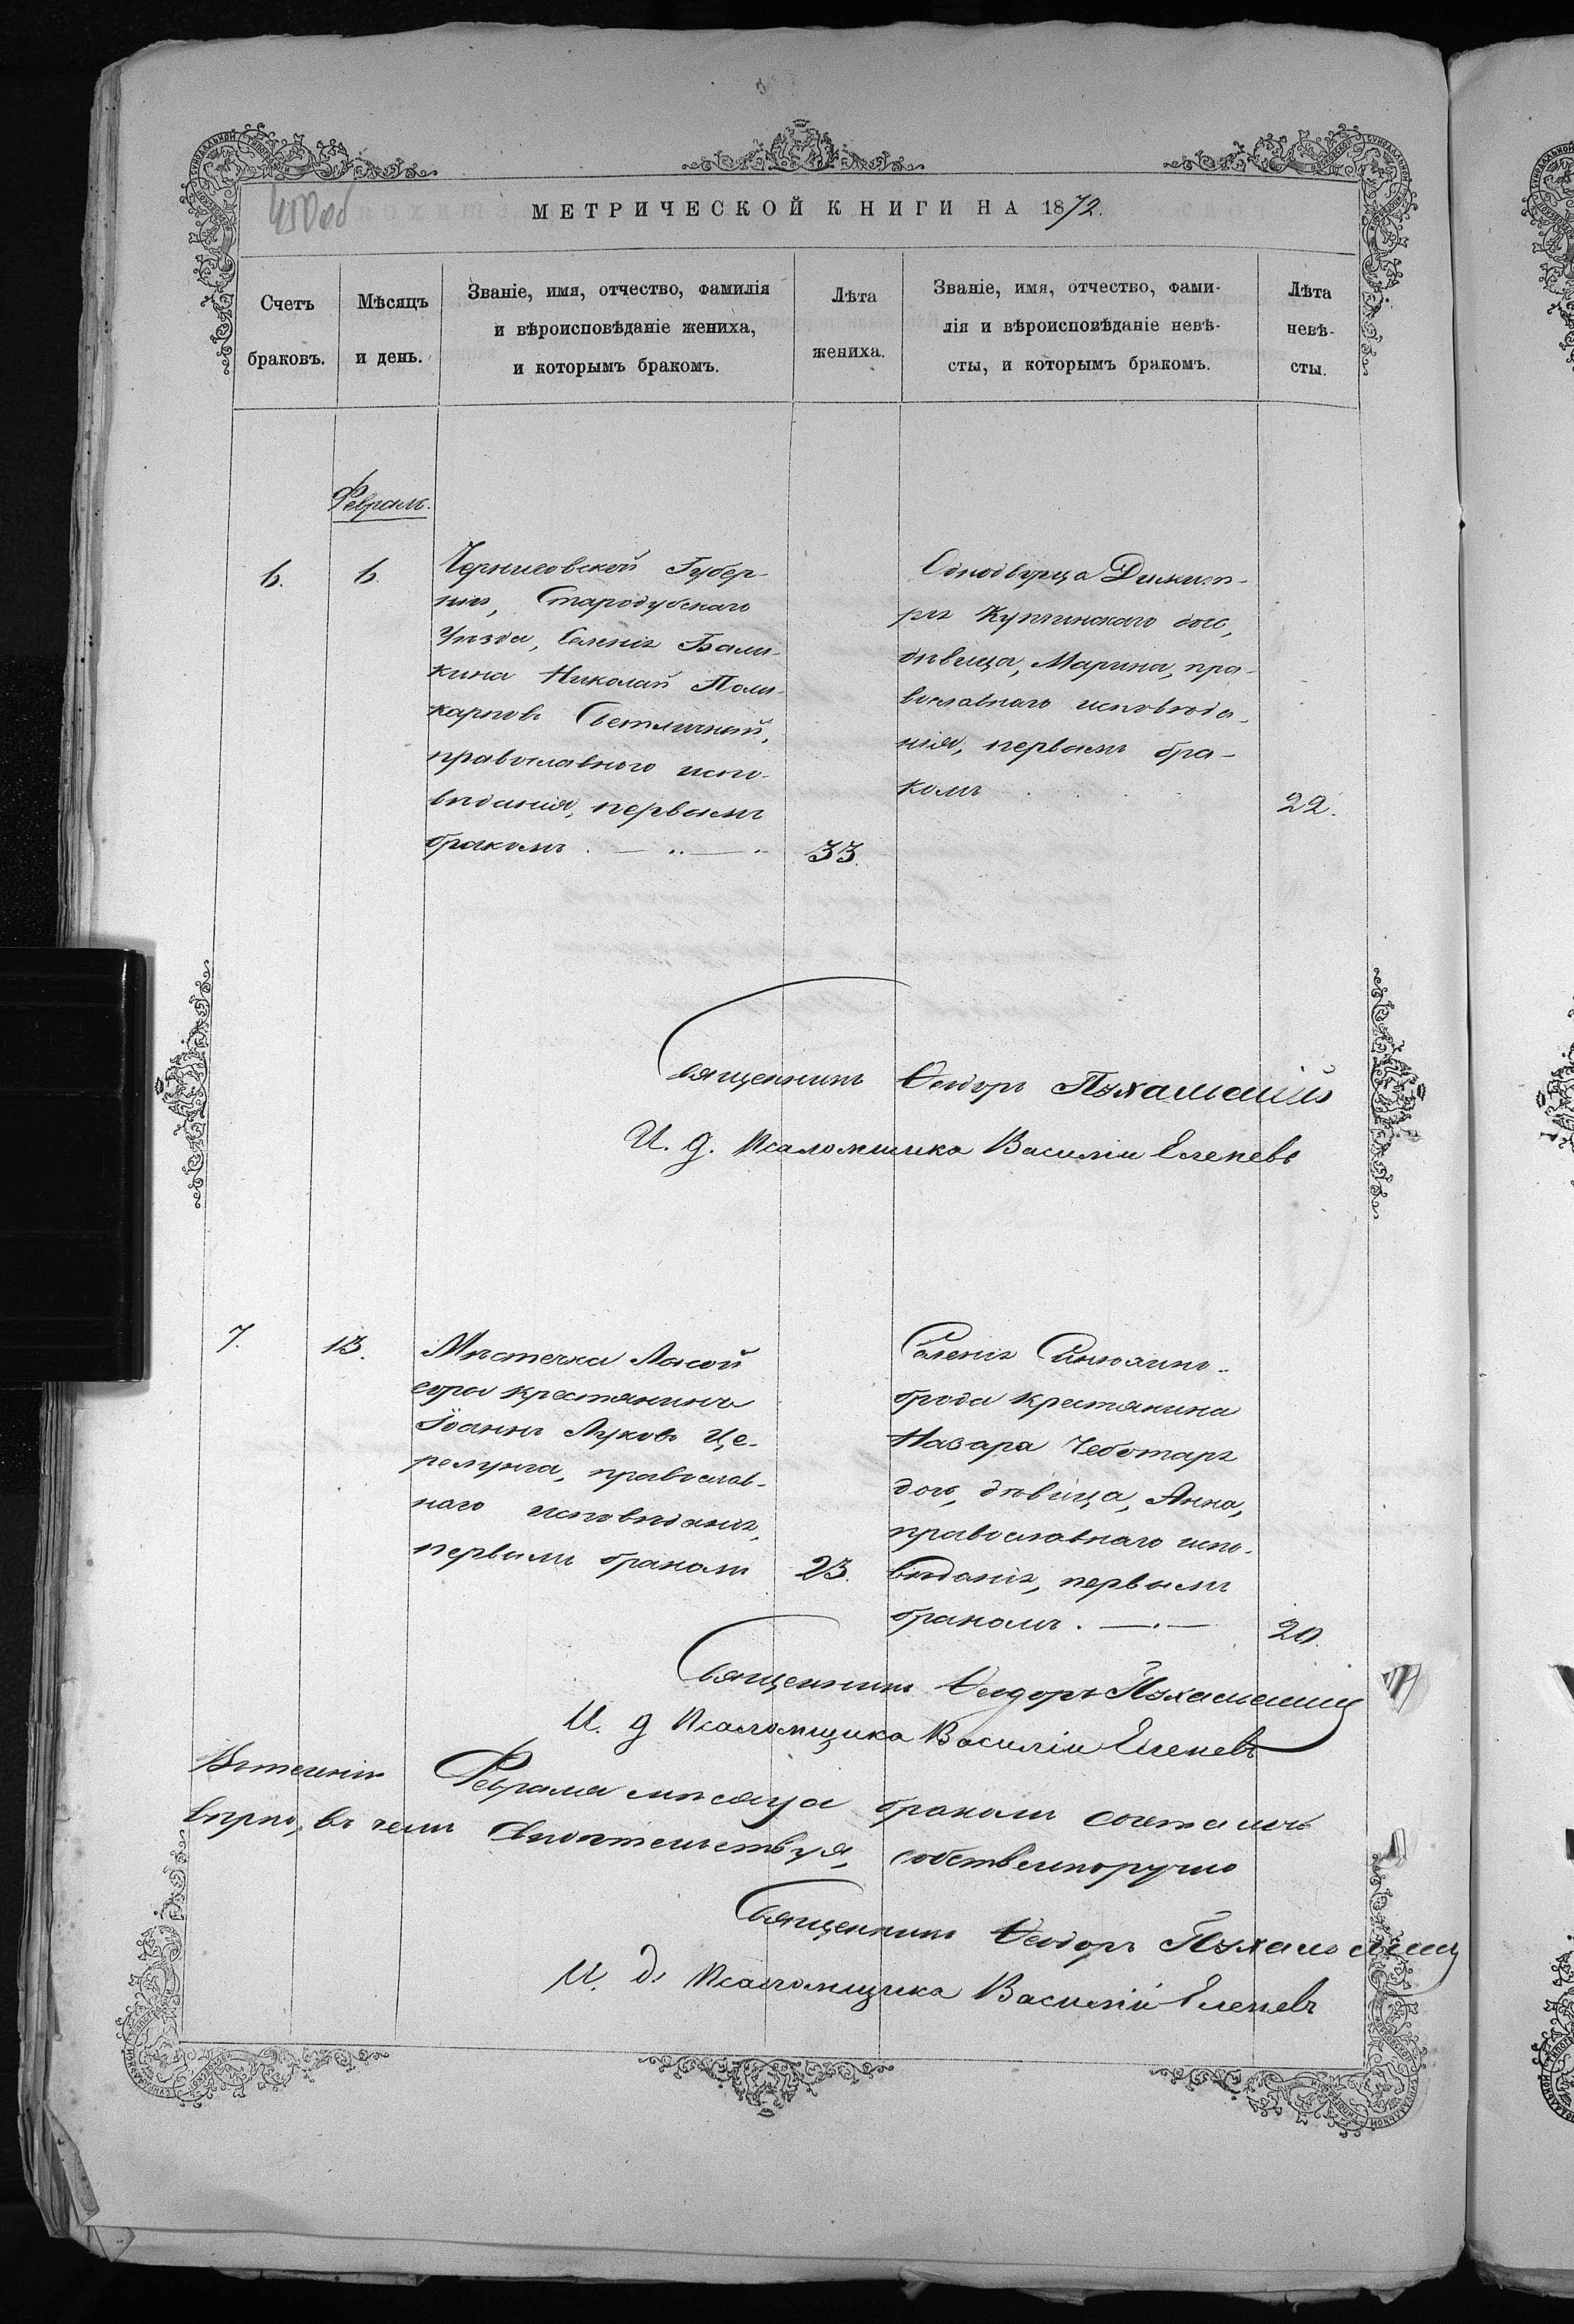 МЕТРИЧЕСКОЙ КНИГИ НА 1872.
Счетъ браковъ.
Мѣсяцъ и день.
Званіе, имя, отчество, фамилія
и вѣроисповѣданіе жениха,
и которымъ бракомъ.
Лѣта жениха.
Званіе, имя, отчество, фами-
лія и вѣроисповѣданіе невѣ-
сты, и которымъ бракомъ.
Лѣта невѣ-
сты.
Февраль.
6.
6.
Черниговской Губер-
ніи, Стародубскаго
Уѣзда, Селенія Бали-
кина Николай Поли-
карповъ Светличный,
православнаго испо-
вѣданія, первымъ
бракомъ
33.
Однодворца Димит-
рія Купчинскаго дочь,
дѣвица, Марина, пра-
вославнаго исповѣда-
нія, первымъ бра-
комъ
22.
Священникъ Ѳеодоръ Пухальскій
И. д. Псаломщика Василій Еленевъ
7.
13.
Мѣстечка Лысой
горы крестянинъ
Іоаннъ Луковъ Це-
релунга, православ-
наго исповѣданія,
первымъ бракомъ
23.
Селенія Синюхино-
брода крестянина
Назара Чеботаря
дочь, дѣвица, Анна,
православнаго испо-
вѣданія, первымъ
бракомъ.
20.
Священникъ Ѳеодоръ Пухальскій
И. д Псаломщика Василій Еленевъ
Въ теченіи Февраля мѣсяца бракомъ сочеталось
вѣрно, въ чемъ свидѣтельствуя, собственноручно
Священникъ Ѳеодоръ Пухальскій
И. д. Псаломщика Василій Еленевъ